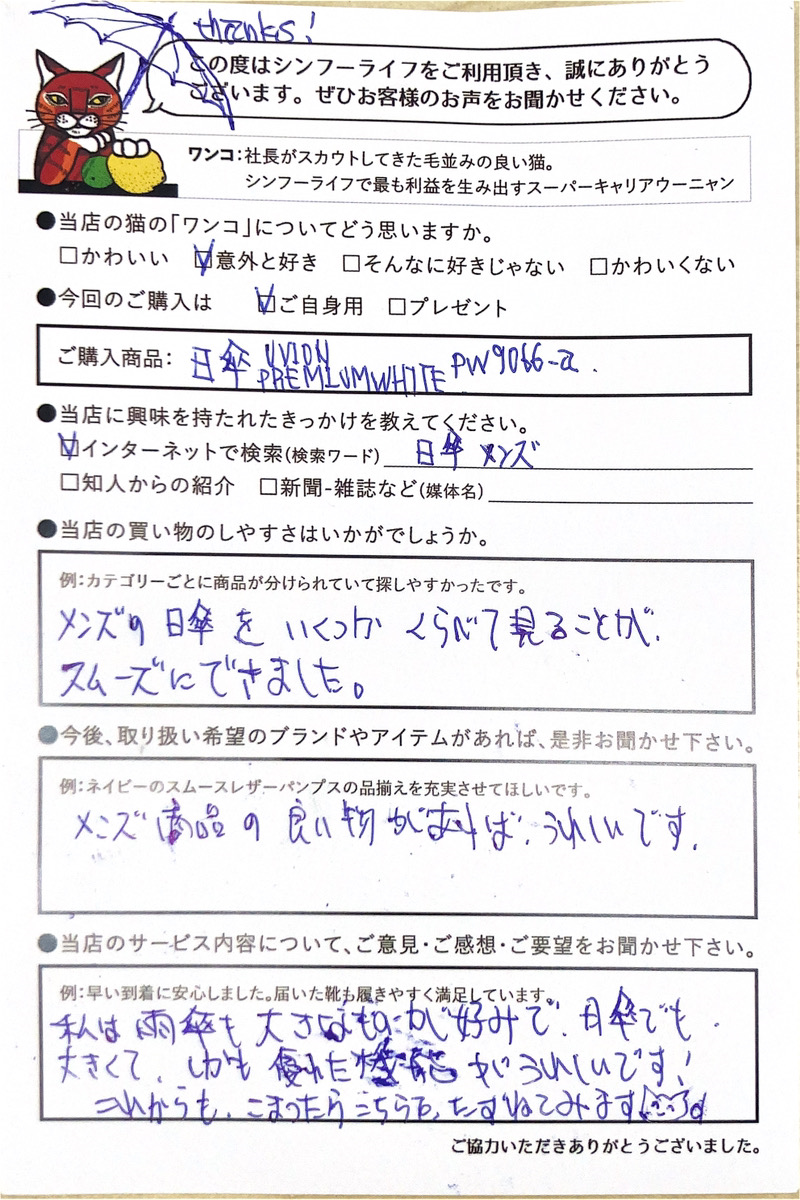 thanks!
この度はシンフーライフをご利用頂き、誠にありがとう
ございます。ぜひお客様のお声をお聞かせください。
ワンコ：社長がスカウトしてきた毛並みの良い猫。
シンフーライフで最も利益を生み出すスーパーキャリアウーニャン
●当店の猫の「ワンコ」についてどう思いますか。
□かわいい ☑意外と好き □そんなに好きじゃない □かわいくない
●今回のご購入は ☑ご自身用 □プレゼント
ご購入商品： 日傘 UVION PREMIUMWHITE PW9066-a.
●当店に興味を持たれたきっかけを教えてください。
☑インターネットで検索(検索ワード) 日傘 メンズ
□知人からの紹介 □新聞-雑誌など(媒体名)
●当店の買い物のしやすさはいかがでしょうか。
例：カテゴリーごとに商品が分けられていて探しやすかったです。
メンズの日傘を いくつか くらべて見ることが、
スムーズにできました。
●今後、取り扱い希望のブランドやアイテムがあれば、是非お聞かせ下さい。
例：ネイビーのスムースレザーパンプスの品揃えを充実させてほしいです。
メンズ商品の良い物があれば、うれしいです。
●当店のサービス内容について、ご意見・ご感想・ご要望をお聞かせ下さい。
例：早い到着に安心しました。届いた靴も履きやすく満足しています。
私は雨傘も大きなものが好みで、日傘でも
大きくて、しかも優れた機能がうれしいです!
これからも、こまったらこちらを、たずねてみます
ご協力いただきありがとうございました。